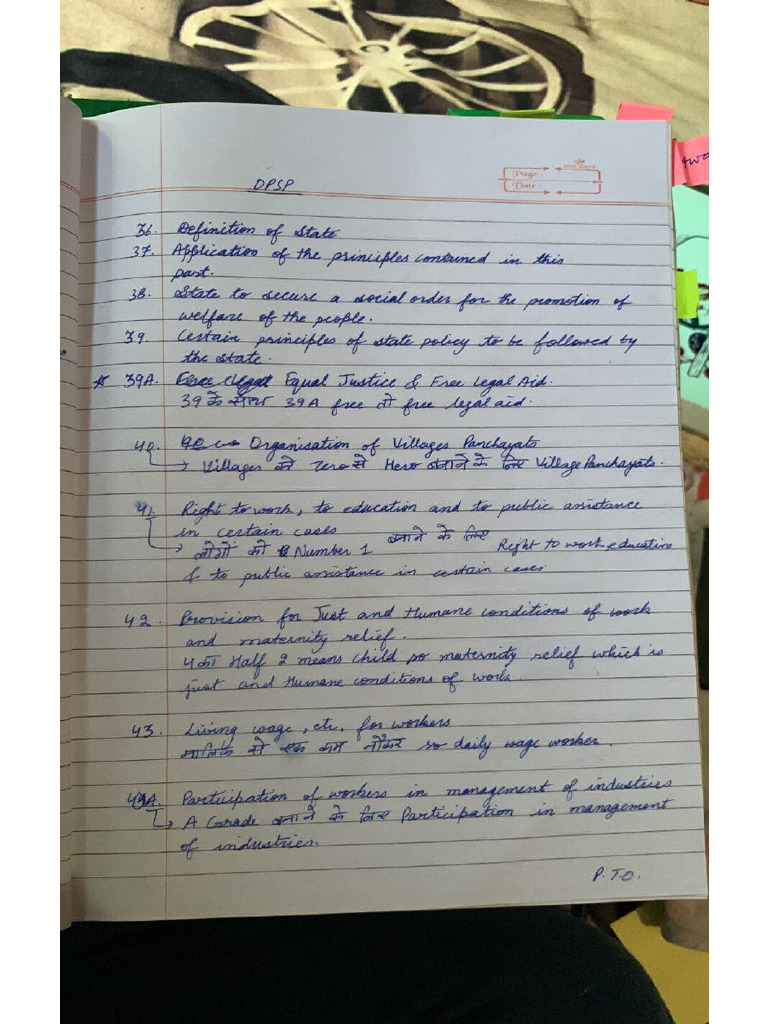 DPSP
Page:
Date:
36. Definition of State
37. Application of the principles contained in this
part.
38. State to secure a social order for the promotion of
welfare of the people.
39. Certain principles of state policy to be followed by
the state.
39A. Equal Justice & Free Legal Aid.
39 के साथ 39A free तो free legal aid.
40. Organisation of Villages Panchayats
Villages को zero से Hero बनाने के लिए Village Panchayats.
41. Right to work, to education and to public assistance
in certain cases
लोगों को Number 1 बनाने के लिए Right to work education
& to public assistance in certain cases
42. Provision for Just and Humane conditions of work
and maternity relief.
4 का Half 2 means child so maternity relief which is
just and Humane conditions of work.
43. Living wage, etc, for workers
मालिक से एक कम नौकर so daily wage worker.
43A. Participation of workers in management of industries
A Grade बनाने के लिए Participation in management
of industries.
P.T.O.